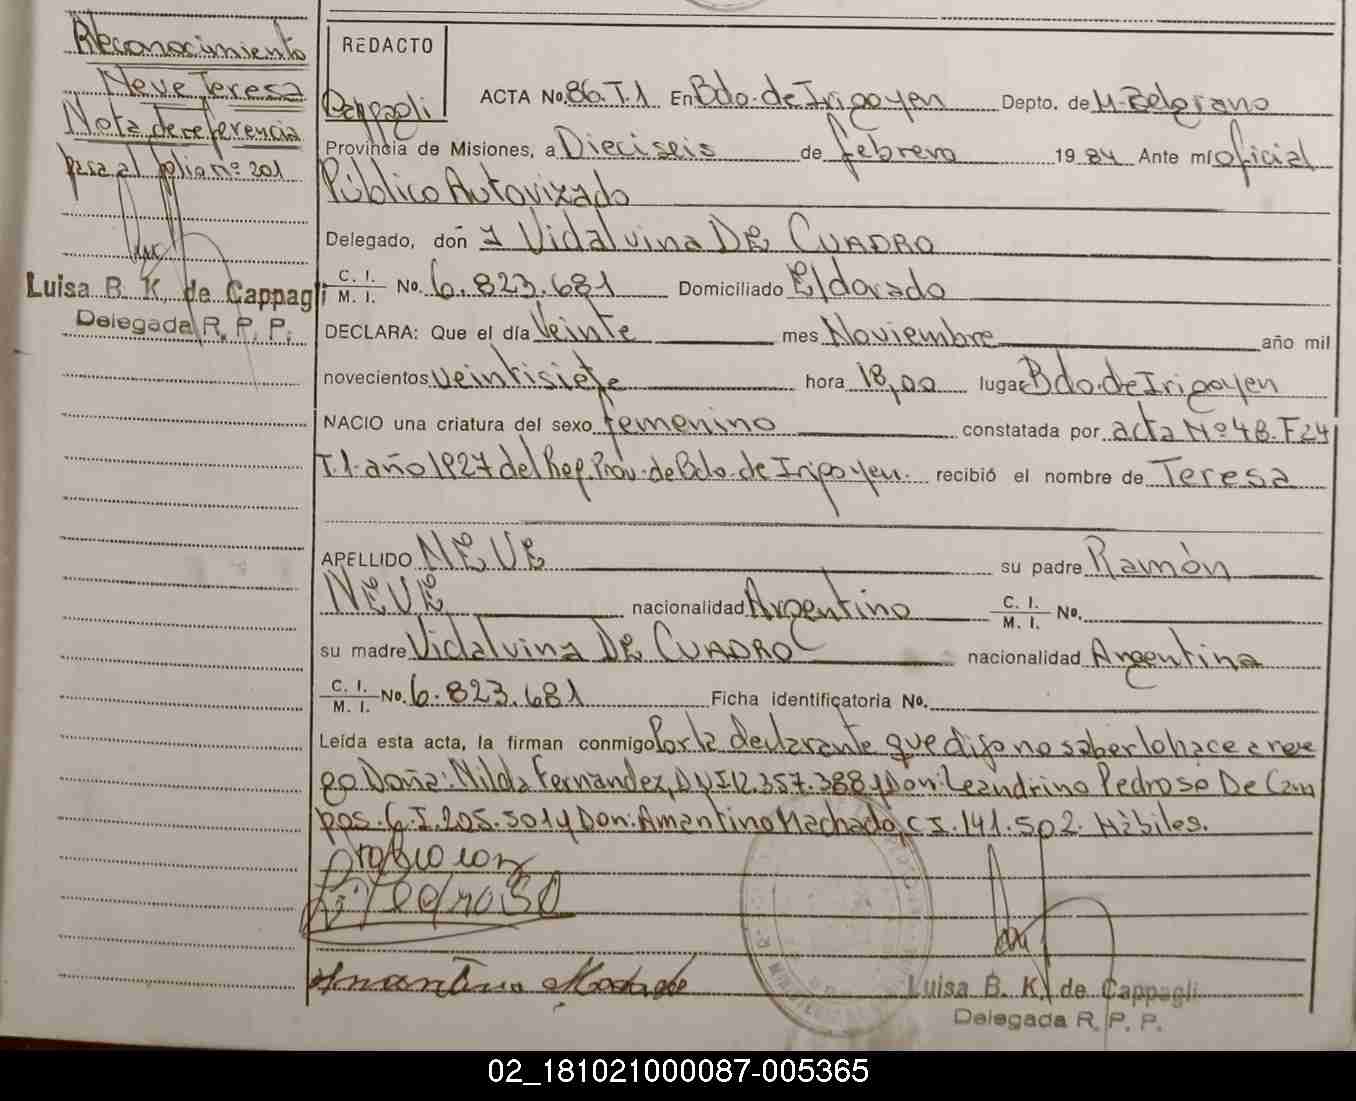 Reconocimiento
Neve Teresa
Nota de referencia
pasa al folio nº 201
Luisa B. K. de Cappagli
Delegada R. P. P.
REDACTO
Cappagli
ACTA No. 86. T.1 En Bdo. de Irigoyen Depto. de M. Belgrano
Provincia de Misiones, a Dieciseis de febrero 1984 Ante mí oficial
Público Autorizado
Delegado, doñ a Vidalvina DE CUADRO
C. I. / M. I. No. 6.823.681 Domiciliado Eldorado
DECLARA: Que el día Veinte mes Noviembre año mil
novecientos veintisiete hora 18,00 lugar Bdo. de Irigoyen
NACIO una criatura del sexo femenino constatada por acta Nº 48. F24
T.1. año 1927 del Reg. Prov. de Bdo. de Irigoyen. recibió el nombre de Teresa
APELLIDO NEVE su padre Ramón
NEVE nacionalidad Argentino C. I. / M. I. No.
su madre Vidalvina DE CUADRO nacionalidad Argentina
C. I. / M. I. No. 6.823.681 Ficha identificatoria No.
Leída esta acta, la firman conmigo Por la declarante que dijo no saber lo hace a rue
go Doña: Nilda Fernandez, DNI 12.357.388 y Don: Leandrino Pedroso De Cam
pos. C.I. 205.501 y Don: Amantino Machado, C I. 141.502. Hàbiles.
Pedroso
Amantino Machado
Luisa B. K. de Cappagli
Delegada R. P. P.
02_181021000087-005365